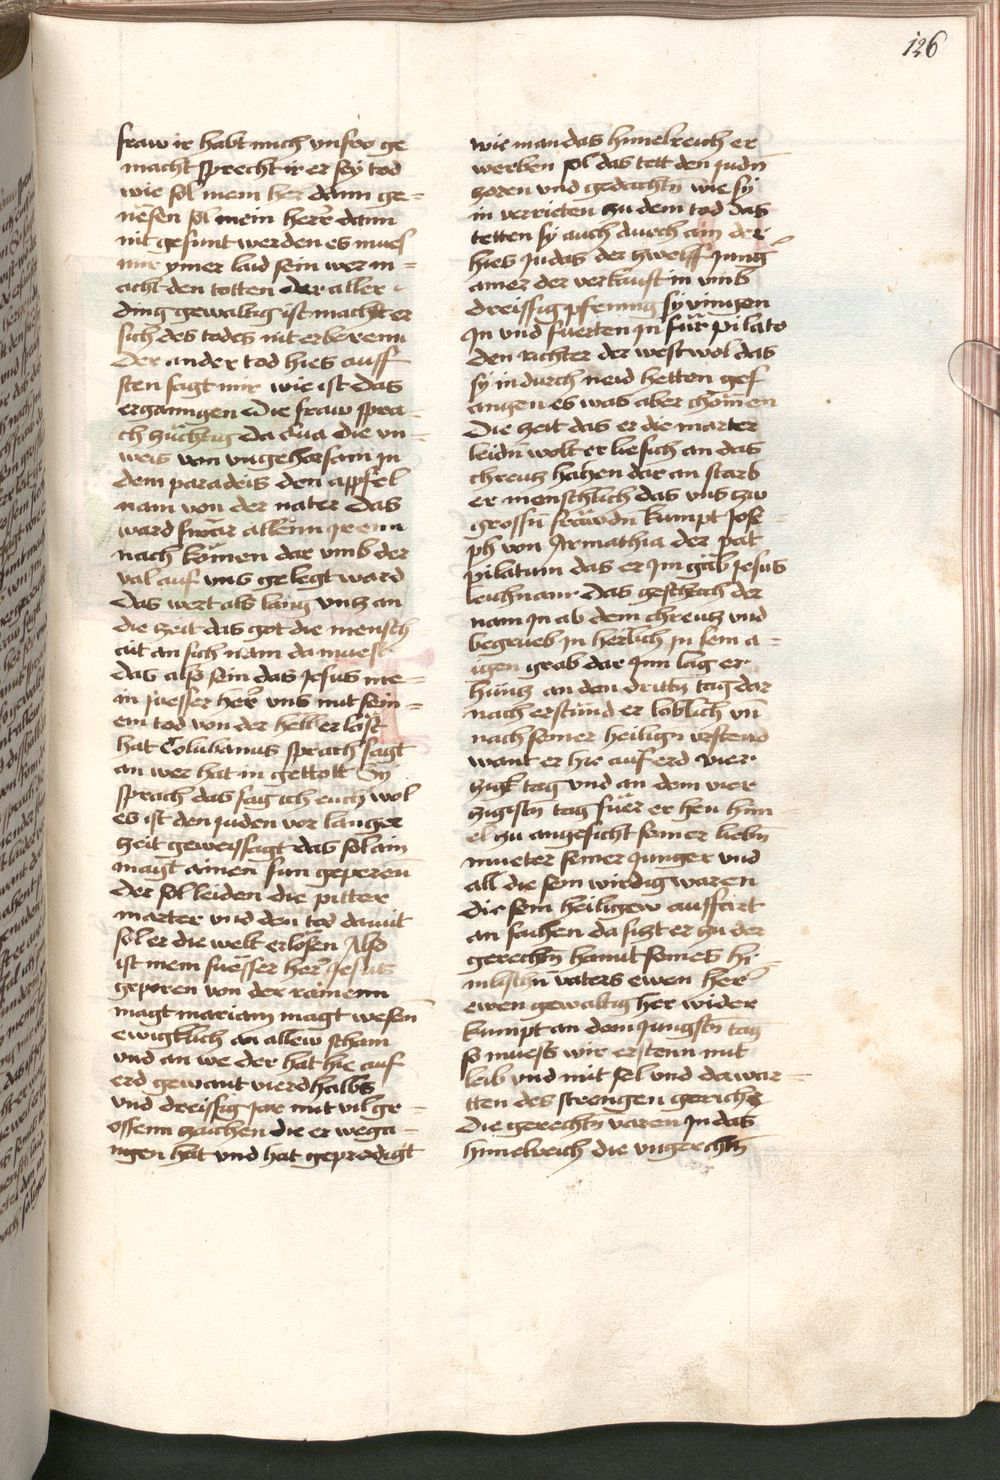 126
fraw ir habt mich unfro ge
macht sprecht ir er sey tod
wie sol mein her dann ge=
nesen sol mein herr dann
nit gesunt werden es mues
mir ymer laid sein wer in=
acht den totten der aller
ding gewaltig ist macht er
sich des todes nit erberenn
Der ander tod hies auff
sten sagt mir wie ist das
ergangen Die fraw spra=
ch züchtig Da Eua die un=
weis von ungehorsam in
dem paradeis den appfel
nam von der nater Das
ward swar allenn Irenn
nach komen dar umb der
val auf uns gelegt ward
Das wert als lang untz an
die zeit das got die mensch
ait an sich nam da muest
das also sein das Jesus me=
in suesser her uns mit sein=
em tod von der hell erlöst
hat Columbanus sprach sagt
an wer hat in gettott Sy
sprach das sag ich euch wol
es ist den juden vor langer
zeit geweyssagt das sol ain
magt ainen sun geperenn
der sol leiden die pitter
marter und den tod damit
sol er die welt erlosen Also
ist mein suesser her Jesus
geporen von der rainenn
magt mariam magt wesen
ewigklich an allew scham
und an we der hat hie auf
erd gewant vierdhalbs
und dreissig Jar mit vil gr=
ossenn zaichen die er wega=
ngen hat und hat geprodigt
wie man das himelreich er
werben sol das tett den judn
zoren und gedachtn wie sy
in verrieten zu dem tod Das
tetten sy auch durch ain der
hies Judas der zwelff Jung
ainer der verkauft in umb
dreissig pfennig sy viengen
In und fuerten In für pilato
den richter der west wol das
sy in durch neid hetten gef
angen es was aber chomen
Die zeit das er die marter
leidn wolt er lie sich an das
chreutz hahen dar an starb
er menschlich das uns zw
grossn fräwdn kumpt Jose=
ph von Armathia der pat
pilatum das er Im gäb Jesus
leichnam Das geschach der
nam In ab dem chreutz und
begrueb In herlich In sein a=
igen grab dar Inn lag er
hüntz an den dritten tag dar
nach erstund er loblich un
nach seiner heilign urstend
want er hie auf erd vier=
tzigk tag und an dem vier
tzigistn tag fuer er hen him
el zu angesicht seiner liebn
mueter seiner Junger und
all die sein wirdig waren
Die sein heiligew auffart
an sachen da sitzt er zu der
gerechtn hannt seines hi=
mlischn vaters ewen her
ewen gewaltig her wider
kumpt an dem Jungstn tag
so muess wir ersten mit
leib und mit sel und da war=
tten des strengen gerichs
Die gerechtn varen In das
himelreich die ungerechtn